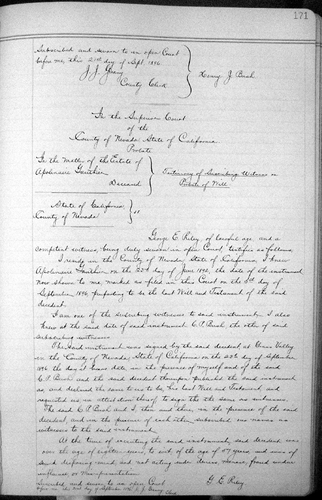 171
Subscribed and sworn to in open Court
before me, this 21st day of Sept. 1896
J. J. Greany
County Clerk
Henry J. Bush
In the Superior Court
of the
County of Nevada State of California
Probate
In the Matter of the Estate of
Apolinaire Gauthier
Deceased
Testimony of Subscribing Witness on
Probate of Will
State of California
County of Nevada
ss
George E. Riley, of lawful age and a
competent witness, being duly sworn in open Court, testifies as follows
I reside in the County of Nevada, State of California, I knew
Apolinaire Gauthier on the day of June 1896, the date of the instrument
now shown to me, marked as filed in this Court on the day of
September 1896, purporting to be the last Will and Testament of the said
decedent.
I am one of the subscribing witnesses to said instrument. I also
knew at the said date of said instrument C. P. Bush, the other of said
subscribing witnesses
The said instrument was signed by the said decedent at Grass Valley
in the County of Nevada, State of California on the day of September
1896 the day it bears date in the presence of myself and of the said
C. P. Bush and the said decedent thereupon published the said instrument
as and declared the same to us to be his last Will and Testament and
requested us in attestation thereof to sign the same as witnesses
The said C. P. Bush and I, then and there, in the presence of the said
decedent, and in the presence of each other, subscribed our names as
witnesses to the said instrument.
At the time of executing the said instrument, said decedent was
over the age of eighteen years, to wit of the age of 47 years and was of
sound disposing mind, and not acting under duress, menace, fraud undue
influence or Misrepresentation
Subscribed and sworn to in open Court
before me this day of September
G. E. Riley